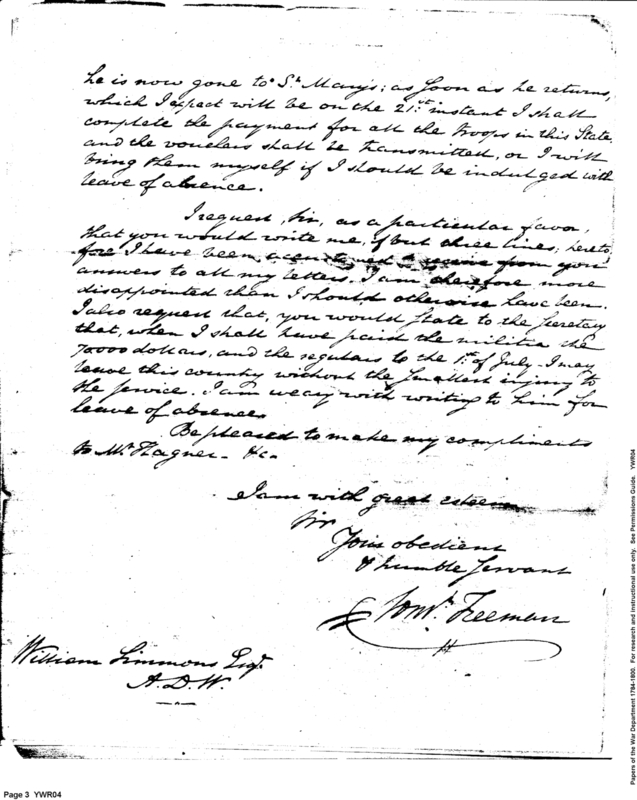 he is now gone to St. Marys; as soon as he returns,
which I expect will be on the 21st. instant I shall
complete the payment for all the troops in this State,
and the vouchers shall be transmitted, or I will
bring them myself if I should be indulged with
leave of absence.
I request, Sir, as a particular favor,
that you would write me, if but three lines; hereto
fore I have been accustomed to receive from you
answers to all my letters, I am therefore more
disappointed than I should otherwise have been.
I also request that, you would state to the Secretary
that, when I shall have paid the militia the
70000 dollars, and the regulars to the 1st. of July I may
leave this country without the smallest injury to
the service. I am weary with writing to him for
leave of absence.
Be pleased to make my compliments
to Mr. Hagner &c.
I am with great esteem
Sir
Your obedient
& humble servant
Freeman
William Simmons Esqr.
A.D.W.
Page 3 YWR04
Papers of the War Department 1784-1800. For research and instructional use only. See Permissions Guide. YWR04